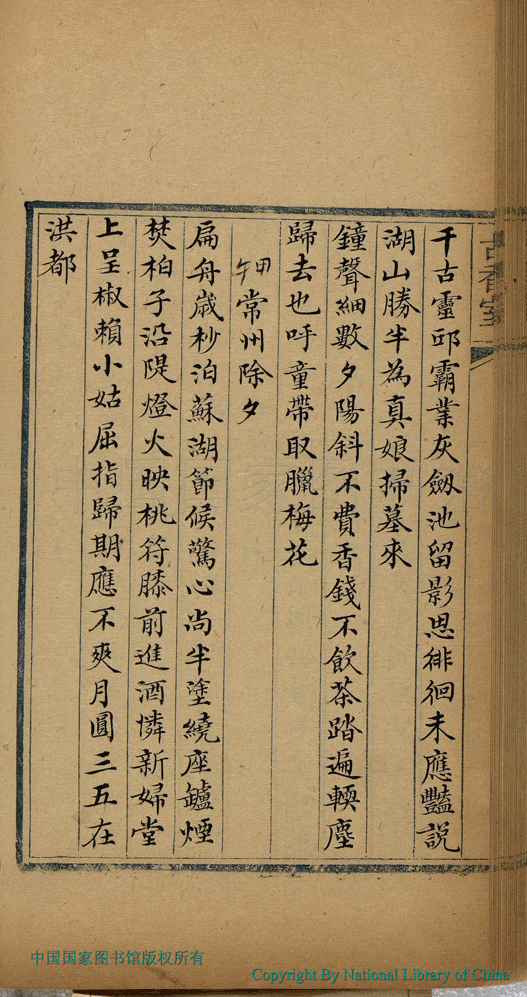 古香室
千古靈邱霸業灰劔池留影思徘徊未應豔說
湖山勝半為真娘掃墓來
鐘聲細數夕陽斜不費香錢不飲茶踏遍輭塵
歸去也呼童帶取臘梅花
常州除夕
扁舟歲杪泊蘇湖節候驚心尚半塗繞座鑪煙
焚柏子沿隄燈火映桃符膝前進酒憐新婦堂
上呈椒賴小姑屈指歸期應不爽月圓三五在
洪都
中国国家图书馆版权所有
Copyright By National Library of China